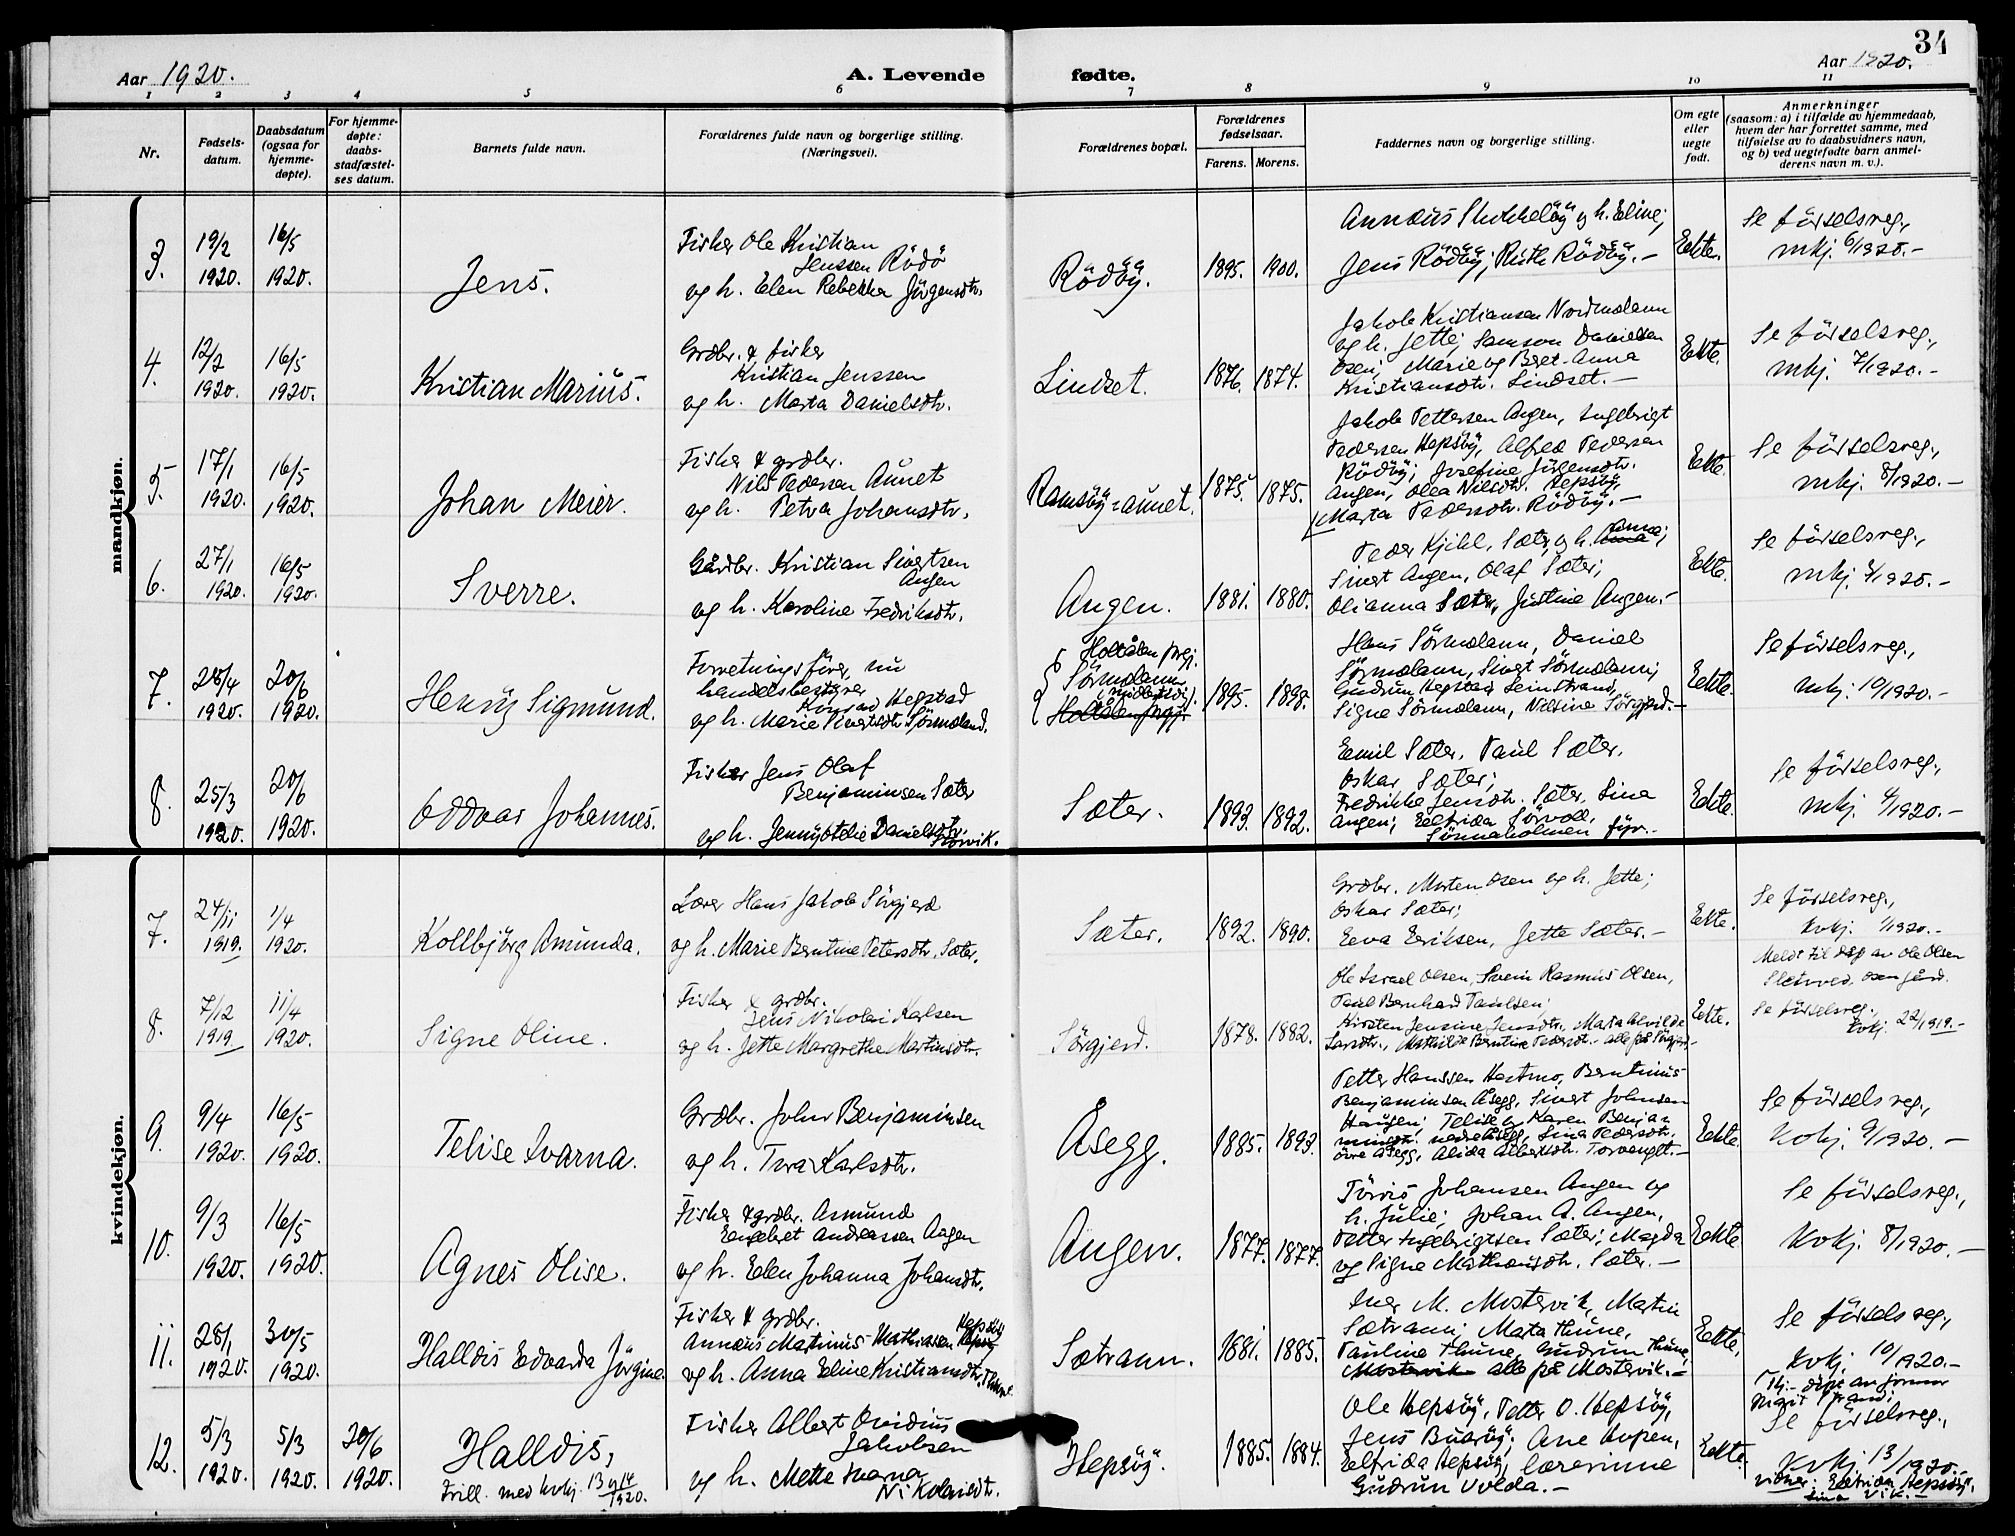 34
Aar 1920.
A. Levende fødte.
Aar 1920.
1 2 3 4 5 6 7 8 9 10 11
Nr.
Fødsels-
datum.
Daabsdatum
(ogsaa for
hjemme-
døpte).
For hjemme-
døpte:
daabs-
stadfæstel-
ses datum.
Barnets fulde navn.
Forældrenes fulde navn og borgerlige stilling.
(Næringsvei).
Forældrenes bopæl.
Forældrenes
fødselsaar.
Farens. Morens.
Faddernes navn og borgerlige stilling.
Om egte
eller
uegte
født.
Anmerkninger
(saasom: a) i tilfælde av hjemmedaab,
hvem der har forrettet samme, med
tilføielse av to daabsvidners navn,
og b) ved uegtefødte barn anmel-
derens navn m. v.).
mandkjøn.
3.
19/2
1920.
16/5
1920.
Jens.
Fisker Ole Kristian
Jenssen Rödö
og h. Elen Rebekka Jörgensdtr.
Rödöy.
1895. 1900.
Annæus og h. Eline;
Jens Rödöy; Ruth Rödöy.-
Ekte.
Se förselsreg.,
mkj. 6/1920.-
4.
12/2
1920.
16/5
1920.
Kristian Marius.
Grdbr. & fisker
Kristian Jenssen
og h. Marta Danielsdtr.
Lindset.
1876. 1874.
Jakob Kristiansen Nordmelann
og h. Jette; Samson Danielsen
Osen; Marie og Beret-Anna
Kristiansdtr. Lindset.-
Ekte.
Se förselsreg.,
mkj. 7/1920.-
5.
17/1
1920.
16/5
1920.
Johan Meier.
Fisker & grdbr.
Nils Pedersen Aunet
og h. Petra Johansdtr.
Ramsöy-aunet.
1875. 1875.
Jakob Pettersen Angen, Ingebrigt
Pedersen Hepsöy, Alfred Pedersen
Rödöy; Josefine Jörgensdtr.
Angen, Olea Nilsdtr. Hepsöy,
Marta Pedersdtr. Rödöy.-
Ekte.
Se förselsreg.,
mkj. 8/1920.-
6.
27/1
1920.
16/5
1920.
Sverre.
Gårdbr. Kristian Sivertsen
Angen
og h. Karoline Fredriksdtr.
Angen.
1881. 1880.
Peder Kjihl, Sæter, og h. Anna;
Sivert Angen, Olaf Sæter;
Olianna Sæter, Justine Angen.-
Ekte.
Se förselsreg.,
mkj. /1920.-
7.
28/4
1920.
20/6
1920.
Henry Sigmund.
Forretningsförer, nu
handelsbestyrer
Konrad Hegstad
og h. Marie Sivertsdtr. Sörmeland.
Holtålen prgj.
Sörmelann
Holtålen prgj.
1895. 1898.
Hans Sörmelann, Daniel
Sörmelann, Sivert Sörmelann;
Gudrun Hegstad Leinstrand,
Signe Sörmelann, Nilsine Sörgjerd.-
Ekte.
Se förselsreg.,
mkj. 10/1920.-
8.
25/3
1920.
20/6
1920.
Oddvar Johannes.
Fisker Jens Olaf
Benjaminsen Sæter
og h. Jenny Otelie Danielsdtr.
Sæter.
1893. 1892.
Emil Sæter, Paul Sæter,
Oskar Sæter;
Fredrikke Jensdtr. Sæter, Lina
Angen; Elfrida Sörvoll,
fyr.-
Ekte.
Se förselsreg.,
mkj. 4/1920.-
kvindekjøn.
7.
24/11
1919.
1/4
1920.
Kollbjörg Amunda.
Lærer Hans Jakob Sörgjerd
og h. Marie Berntine Petersdtr. Sæter.
Sæter.
1892. 1890.
Grdbr. Morten Osen og h. Jette;
Oskar Sæter;
Eeva Eriksen, Jette Sæter.-
Ekte.
Se förselsreg.,
kvkj. 1/1920.-
8.
7/12
1919
11/4
1920.
Signe Oline.
Fisker & grdbr.
Jens Nikolai Karlsen
og h. Jette Margrethe Martinsdtr.
Sörgjerd.
1878. 1882.
Ole Israel Olsen, Svein Rasmus Olsen,
Paul Bernhard Paulsen;
Kirsten Jensine Jensdtr., Marta Alvilde
Larsdtr., Mathilde Berntine Pedersdtr.- alle på Sörgjerd.-
Ekte.
Meldt til dåp av Ole Olsen
Sletned, Osen gård.
Se förselsreg.,
kvkj. 22/1919.-
9.
9/4
1920.
16/5
1920.
Telise Ivarna.
Grdbr. John Benjaminsen
og h. Tora Karlsdtr.
Åsegg.
1885. 1893.
Petter Hanssen Hestmo, Berntinus
Benjaminsen Åsegg, Sivert Johnsen
Haugen; Telise og Karen Benjaminsdtr.
nedre Åsegg, Lina Pedersdtr.
övre Åsegg, Alida Albertsdtr. Torvenget.-
Ekte.
Se förselsreg.,
kvkj. 9/1920.-
10.
9/3
1920.
16/5
1920.
Agnes Olise.
Fisker & grdbr. Asmund
Engebret Andreassen Angen
og h. Elen Johanna Johansdtr.
Angen.
1877. 1877.
Johansen Angen og
h. Julie; Johan A. Angen,
Petter Ingebrigtsen Sæter; Magda
og Signe Mathæusdtr. Sæter.-
Ekte
Se förselsreg.,
kvkj. 8/1920.-
11.
28/1
1920.
30/5
1920.
Halldis Edvarda Jörgine.
Fisker & grdbr.
Annæus Matinus Mathiassen Hepsöy
og h. Anna Eline Kristiansdtr. Thune.
Sætrann.
1881. 1885.
Iver M. Mostervik, Martin
Sætrann; Marta Thune,
Pauline Thune, Gudrun Thune,
Mostervik alle på Mostervik.-
Ekte.
Se förselsreg.,
kvkj. 10/1920.-
12.
5/3
1920.
5/3
1920.
20/6
1920.
Halldis,
Trill. med kvkj. 13 og 14
1920.
Fisker Albert Ovidius
Jakobsen
og h. Mette Ivarna
Nikolaisdtr.
Hepsöy.
1885. 1884.
Ole Hepsöy, Petter O. Hepsöy,
Jens Buaröy; Ane Hopen,
Elfrida Hepsöy, lærerinne
Gudrun Volda.-
Ekte.
Hj.-döpt av jormor
Strand;
Se förselsreg.,
kvkj. 13/1920.
vidner: Elfrida Hepsöy,
Lina Vik.-